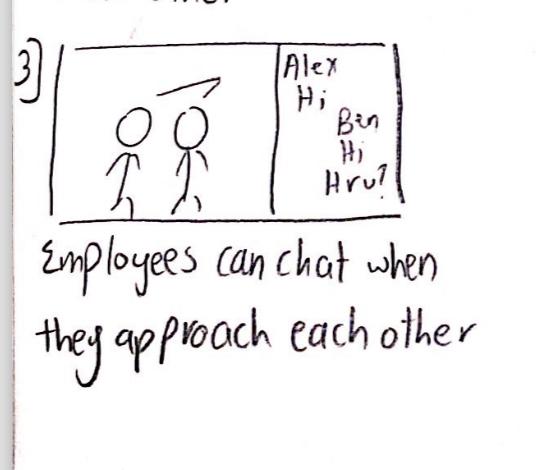 3]
Alex
Hi
Ben
Hi
Hru?
Employees can chat when
they approach each other